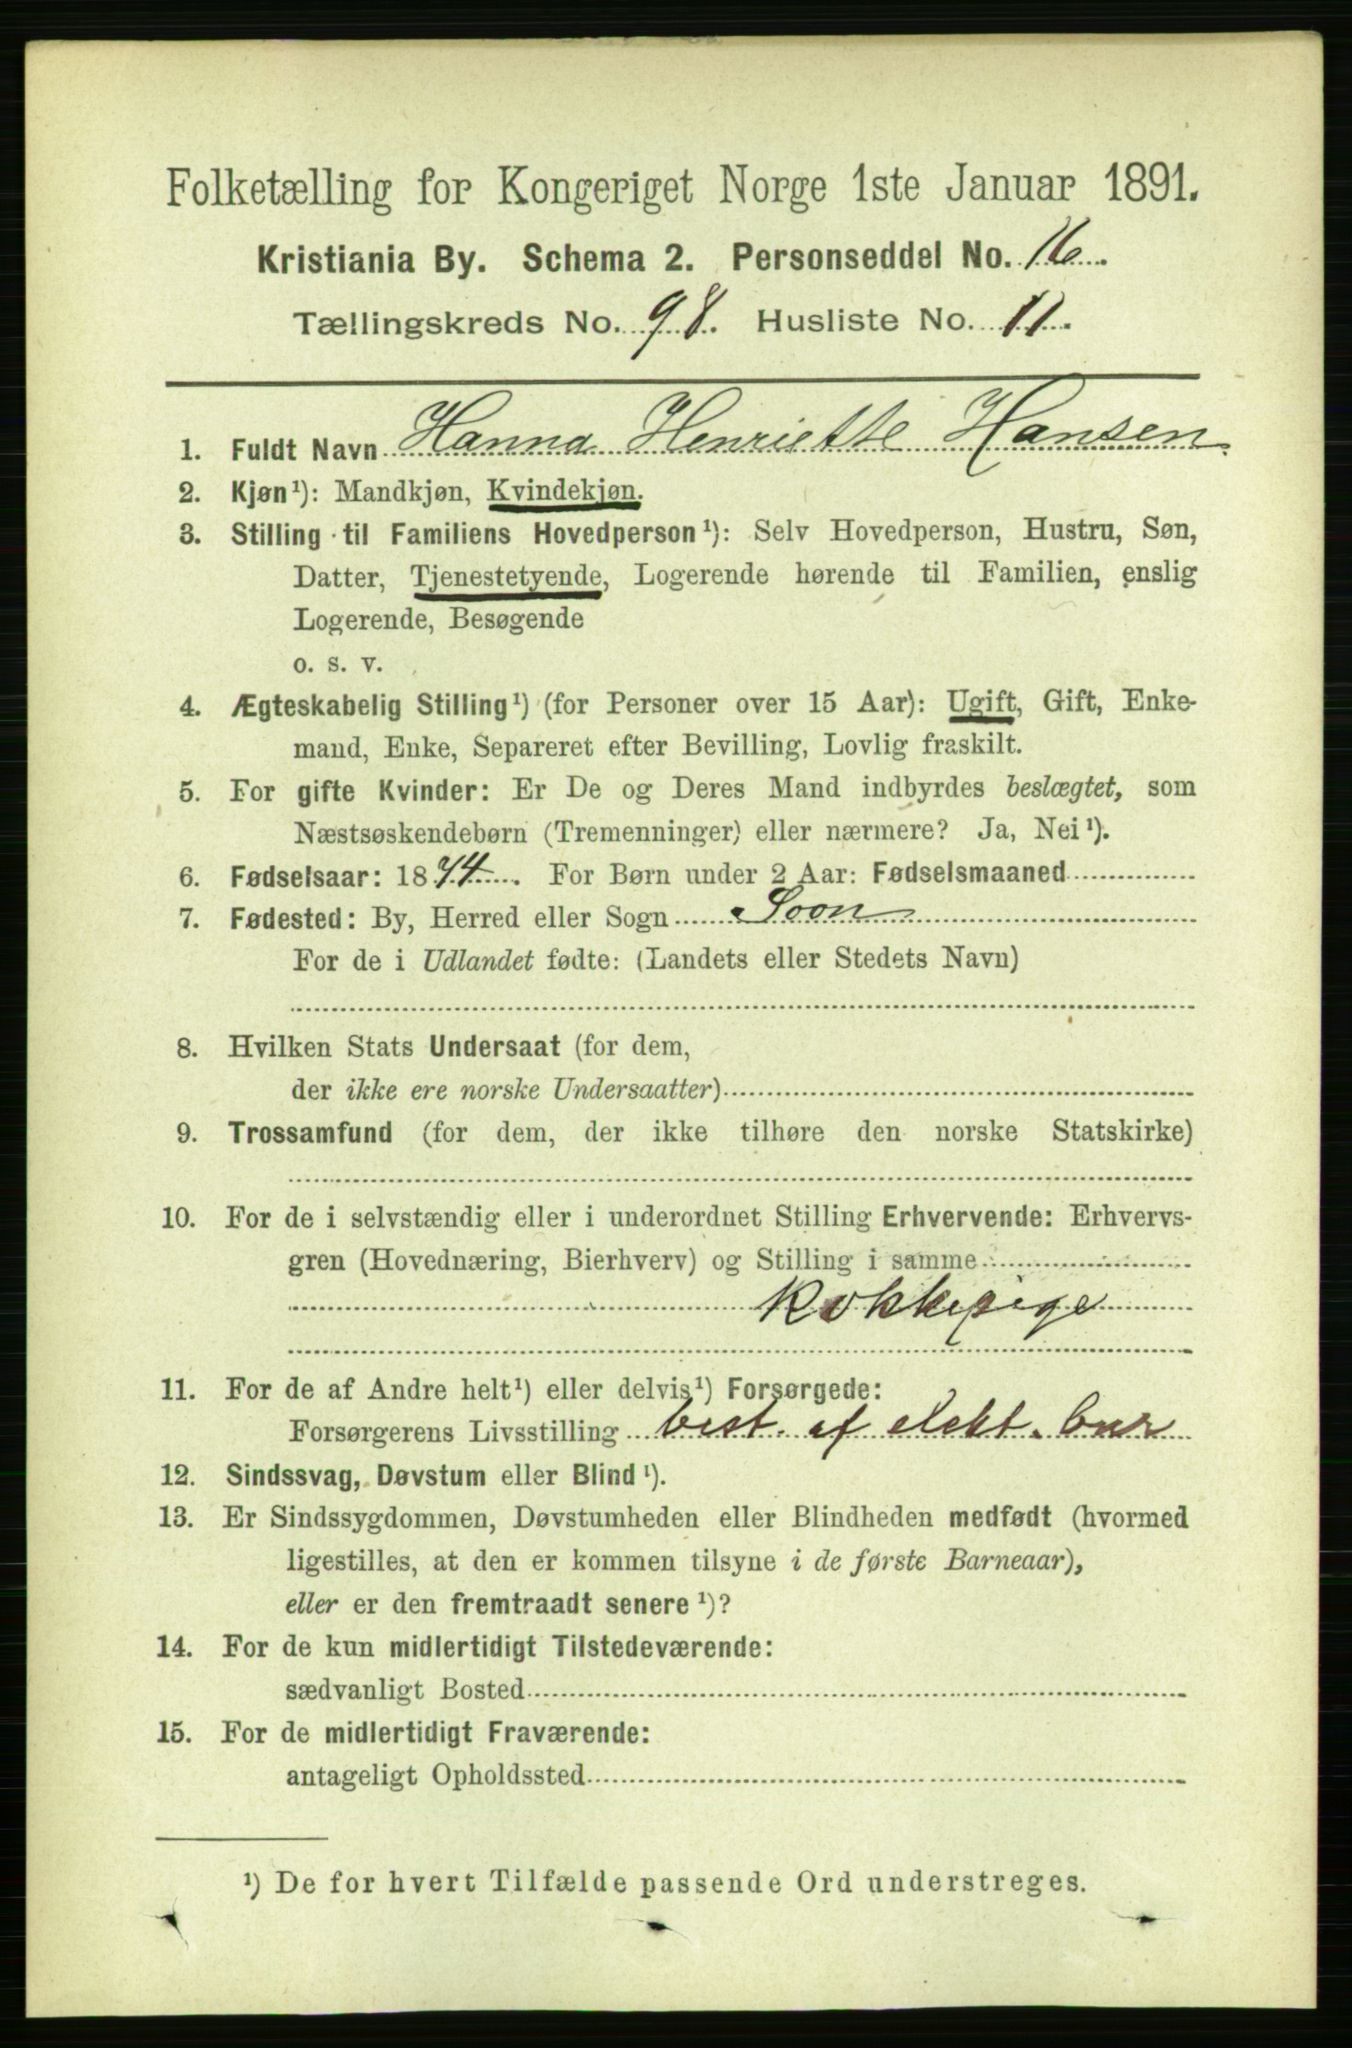 Folketælling for Kongeriget Norge 1ste Januar 1891.
Kristiania By. Schema 2. Personseddel No. 16.
Tællingskreds No. 98. Husliste No. 11.
1. Fuldt Navn Hanna Henriette Hansen
2. Kjøn¹): Mandkjøn, Kvindekjøn.
3. Stilling til Familiens Hovedperson¹): Selv Hovedperson, Hustru, Søn,
Datter, Tjenestetyende, Logerende hørende til Familien, enslig
Logerende, Besøgende
o. s. v.
4. Ægteskabelig Stilling¹) (for Personer over 15 Aar): Ugift, Gift, Enke-
mand, Enke, Separeret efter Bevilling, Lovlig fraskilt.
5. For gifte Kvinder: Er De og Deres Mand indbyrdes beslægtet, som
Næstsøskendebørn (Tremenninger) eller nærmere? Ja, Nei¹).
6. Fødselsaar: 1874. For Børn under 2 Aar: Fødselsmaaned
7. Fødested: By, Herred eller Sogn Soon
For de i Udlandet fødte: (Landets eller Stedets Navn)
8. Hvilken Stats Undersaat (for dem,
der ikke ere norske Undersaatter)
9. Trossamfund (for dem, der ikke tilhøre den norske Statskirke)
10. For de i selvstændig eller i underordnet Stilling Erhvervende: Erhvervs-
gren (Hovednæring, Bierhverv) og Stilling i samme
Kokkepige
11. For de af Andre helt¹) eller delvis¹) Forsørgede:
Forsørgerens Livsstilling best. af elekt.
12. Sindssvag, Døvstum eller Blind¹).
13. Er Sindssygdommen, Døvstumheden eller Blindheden medfødt (hvormed
ligestilles, at den er kommen tilsyne i de første Barneaar),
eller er den fremtraadt senere¹)?
14. For de kun midlertidigt Tilstedeværende:
sædvanligt Bosted
15. For de midlertidigt Fraværende:
antageligt Opholdssted
¹) De for hvert Tilfælde passende Ord understreges.